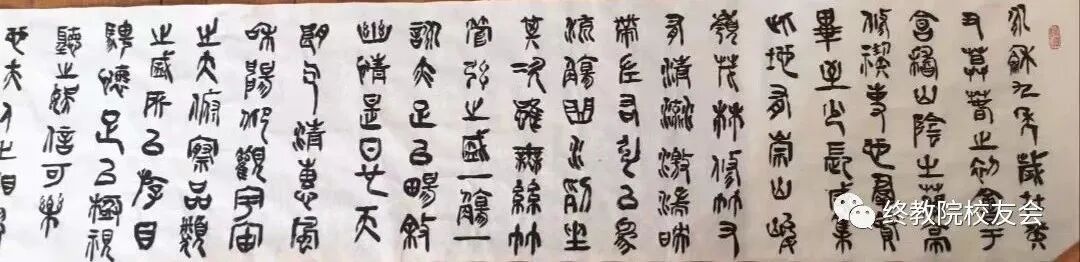 永和九年歲在癸
丑暮春之初會于
會稽山陰之蘭亭
修禊事也群賢
畢至少長咸集
此地有崇山峻
嶺茂林修竹又
有清流激湍映
帶左右引以為
流觴曲水列坐
其次雖無絲竹
管弦之盛一觴一
詠亦足以暢敘
幽情是日也天
朗气清惠風
和暢仰觀宇宙
之大俯察品類
之盛所以游目
騁懷足以極視
聽之娛信可樂
也夫人之相
终教院校友会